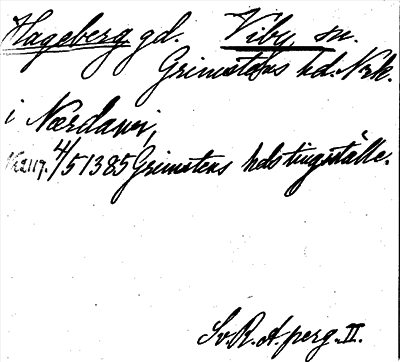 Hageberg gd. Viby sn.
Grimstens hd. Nrk.
i Nærdawi,
N:2117. 4/5 1385 Grimstens hds tingställe.
Sv. R. A. perg. II.